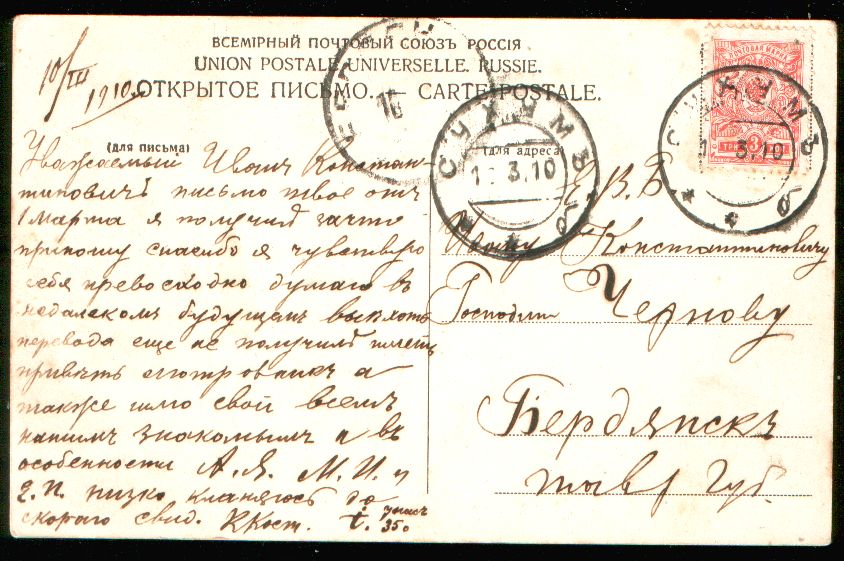 ВСЕМІРНЫЙ ПОЧТОВЫЙ СОЮЗЪ РОССІЯ
UNION POSTALE UNIVERSELLE. RUSSIE.
ОТКРЫТОЕ ПИСЬМО. — CARTE POSTALE.
10/III
1910.
(для письма)
Уважаемый Иванъ Констан-
тиновичъ письмо твое отъ
1 марта я получилъ за что
приношу спасибо я чувствую
себя превосходно думаю въ
недалекомъ будущемъ выехать
перевода еще не получилъ
привѣтъ а
также шлю свой всемъ
нашимъ знакомымъ и въ
особенности А.Я. М.И. и
низко кланяюсь до
скораго свид. К Кост. t.
35°
(для адреса)
Е.В.Б
Ивану Константиновичу
Господину Чернову
Бердянскъ
тавр губ.
ПОЧТОВАЯ МАРКА
3
СУХУМЪ
3.10
СУХУМЪ
3.10
16